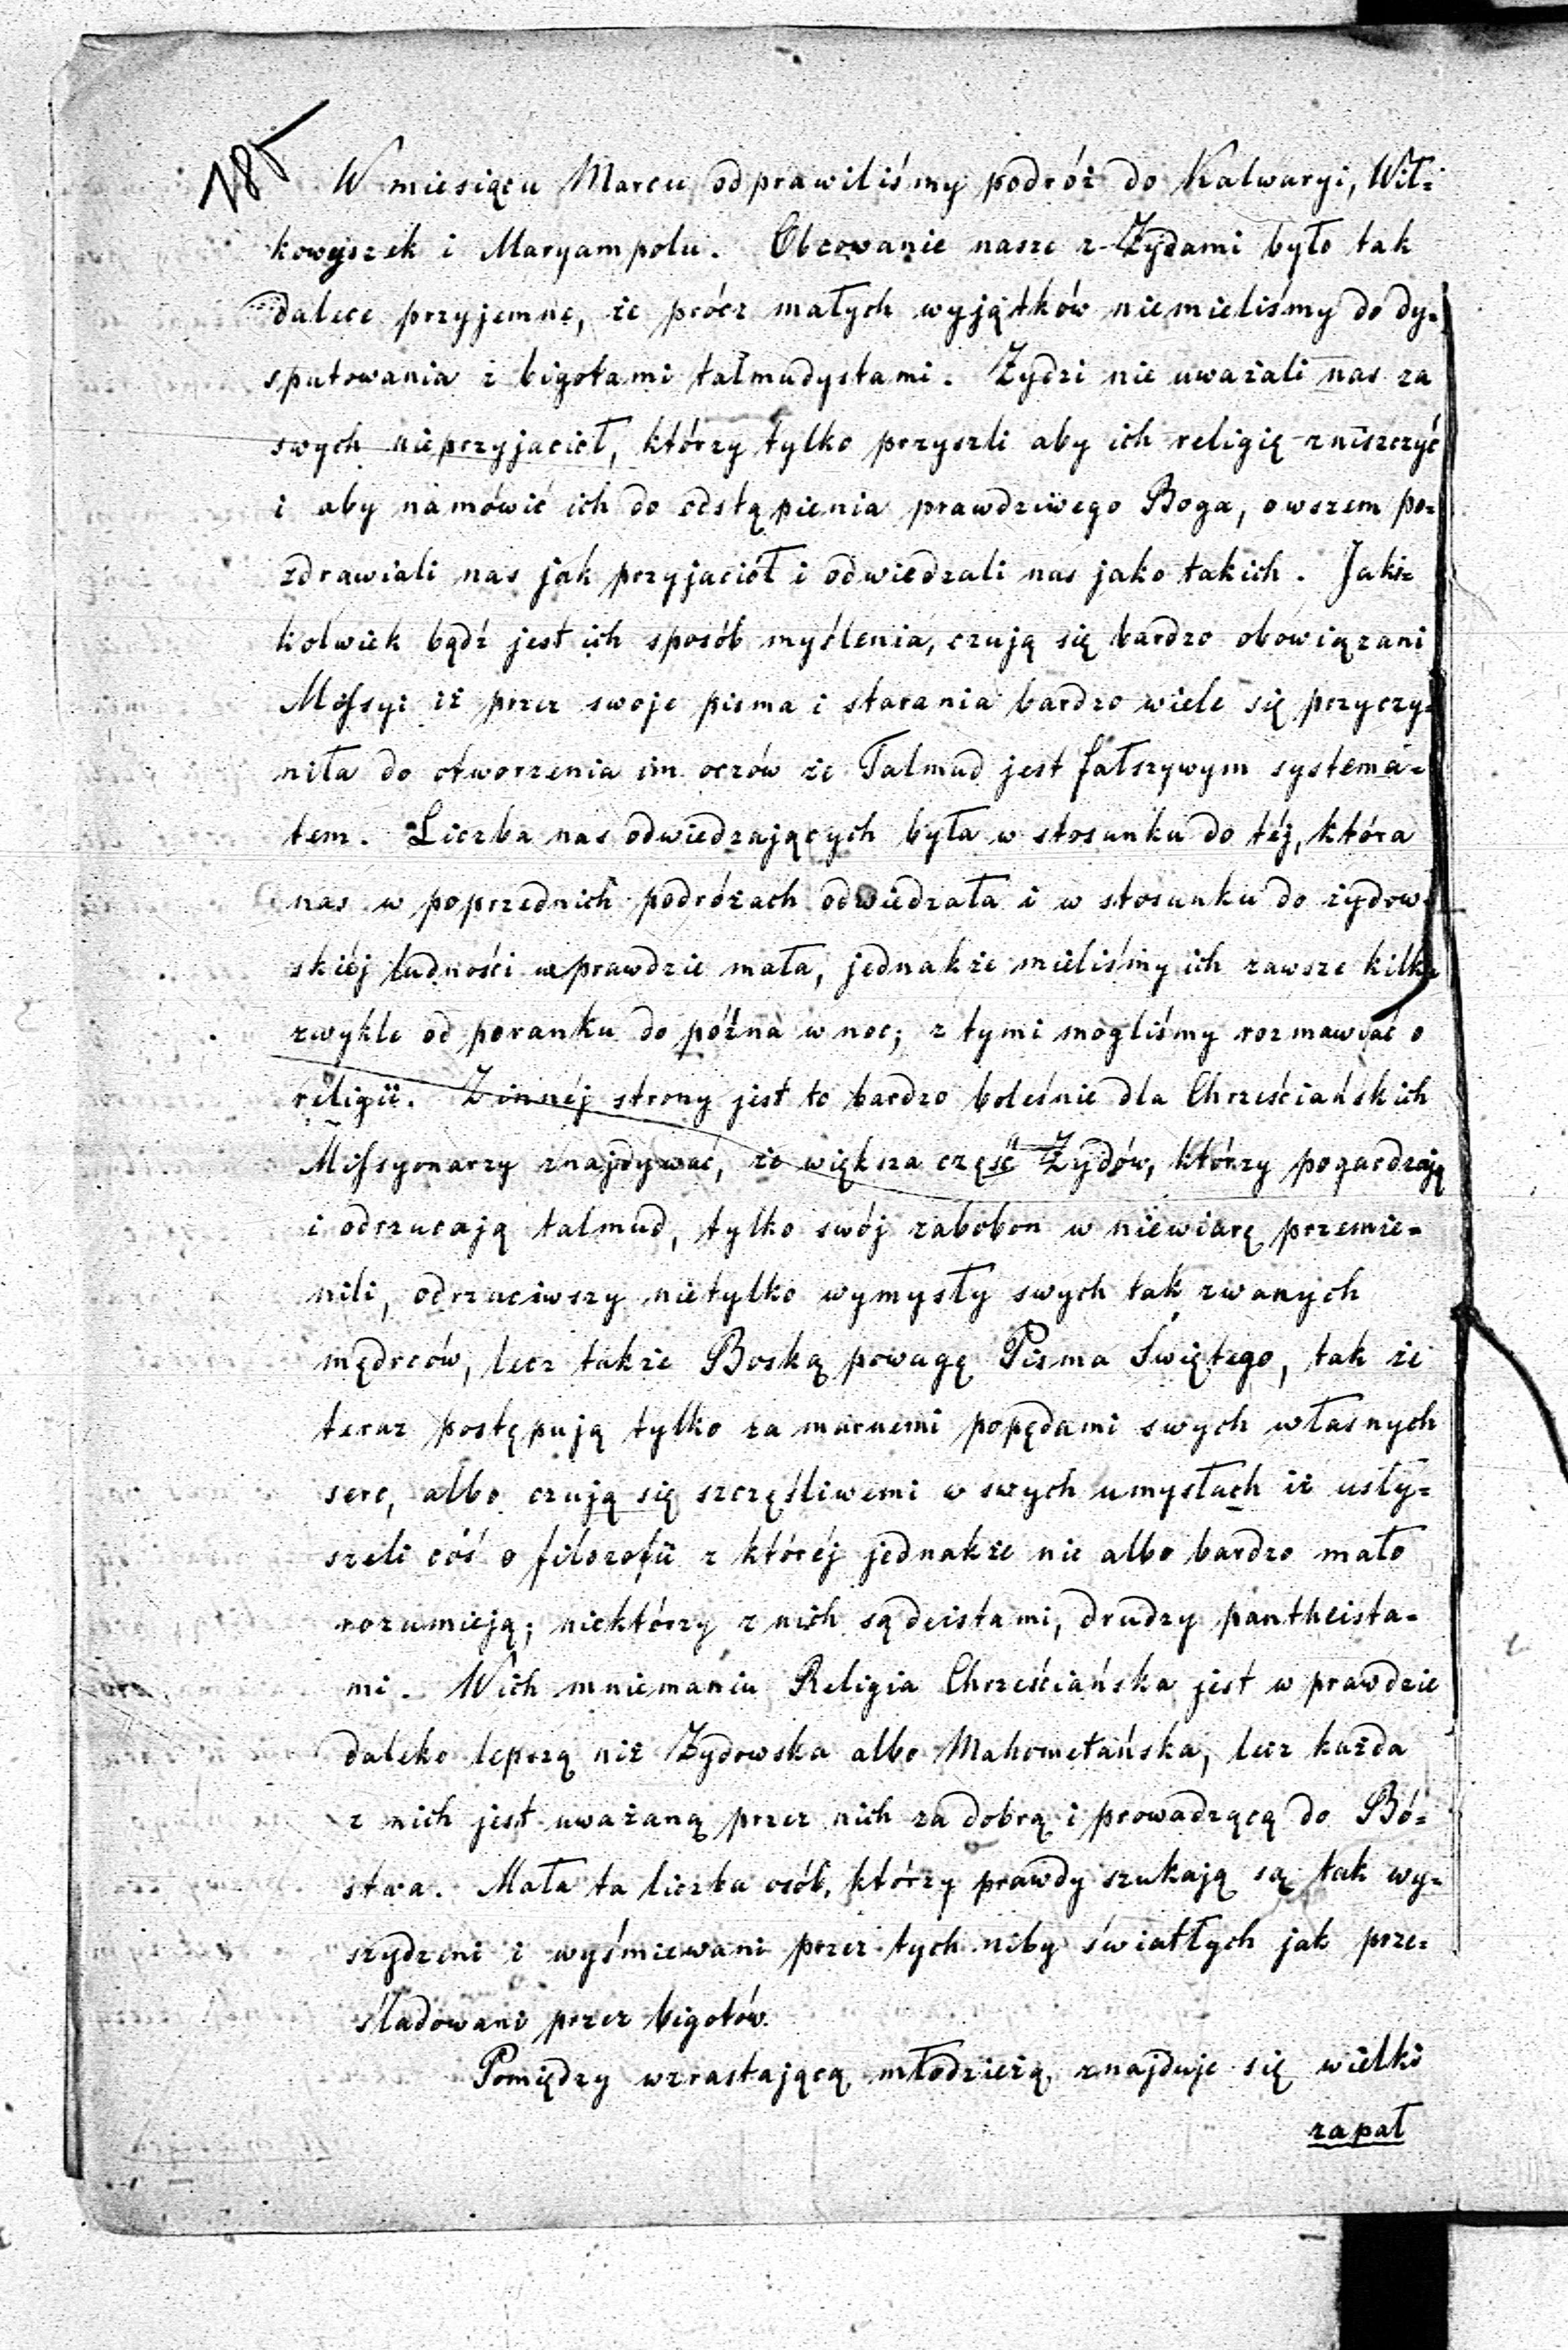 185
W miesiącu Marcu odprawiliśmy podróż do Kalwaryi, Wił-
kowyszek i Maryampolu. Obcowanie nasze z Żydami było tak
dalece przyjemne, że prócz małych wyjątków niemieliśmy do dy-
sputowania z bigotami talmudystami. Żydzi nie uważali nas za
swych nieprzyjaciół, którzy tylko przyszli aby ich religię zniszczyć
i aby namówić ich do odstąpienia prawdziwego Boga, owszem po-
zdrawiali nas jak przyjaciół i odwiedzali nas jako takich. Jaki-
kolwiek bądź jest ich sposób myślenia, czują się bardzo obowiązani
Missyi iż przez swoje pisma i starania bardzo wiele się przyczy-
niła do otworzenia im oczów że Talmud jest fałszywym systema-
tem. Liczba nas odwiedzających była w stosunku do téj, która
nas w poprzednich podróżach odwiedzała i w stosunku do żydow-
skiéj ludności wprawdzie mała, jednakże mieliśmy ich zawsze kilka
zwykle od poranku do późna w noc; z tymi mogliśmy rozmawiać o
religii. Z innéj strony jest to bardzo boleśnie dla Chrześciańskich
Missyonarzy znajdywać, że większa część Żydów, którzy pogardzają
i odrzucają talmud, tylko swój zabobon w niewiarę przemie-
nili, odrzuciwszy nietylko wymysły swych tak zwanych
mędrców, lecz także Boską powagę Pisma Świętego, tak że
teraz postępują tylko za marnemi popędami swych własnych
serc, albo czują się szczęśliwemi w swych umysłach iż usły-
szeli cóś o filozofii z któréj jednakże nic albo bardzo mało
rozumieją; niektórzy z nich są deistami, drudzy pantheista-
mi. W ich mniemaniu Religia Chrześciańska jest w prawdzie
daleko lepszą niż Żydowska albo Mahometańska, lecz każda
z nich jest uważaną przez nich za dobrą i prowadzącą do Bó-
stwa. Mała ta liczba osób, którzy prawdy szukają są tak wy-
szydzeni i wyśmiewani przez tych niby światłych jak prze-
śladowani przez bigotów.
Pomiędzy wzrastającą młodzieżą, znajduje się wielki
zapał